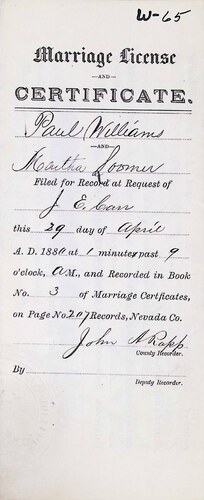 W-65
Marriage License
—AND—
CERTIFICATE.
Paul Williams
—AND—
Martha Loomer
Filed for Record at Request of
J. E. Carr
this 29 day of April
A. D. 1880 at 1 minutes past 9
o'clock, A M., and Recorded in Book
No. 3 of Marriage Certficates,
on Page No. 207 Records, Nevada Co.
John A Rapp
County Recorder.
By
Deputy Recorder.